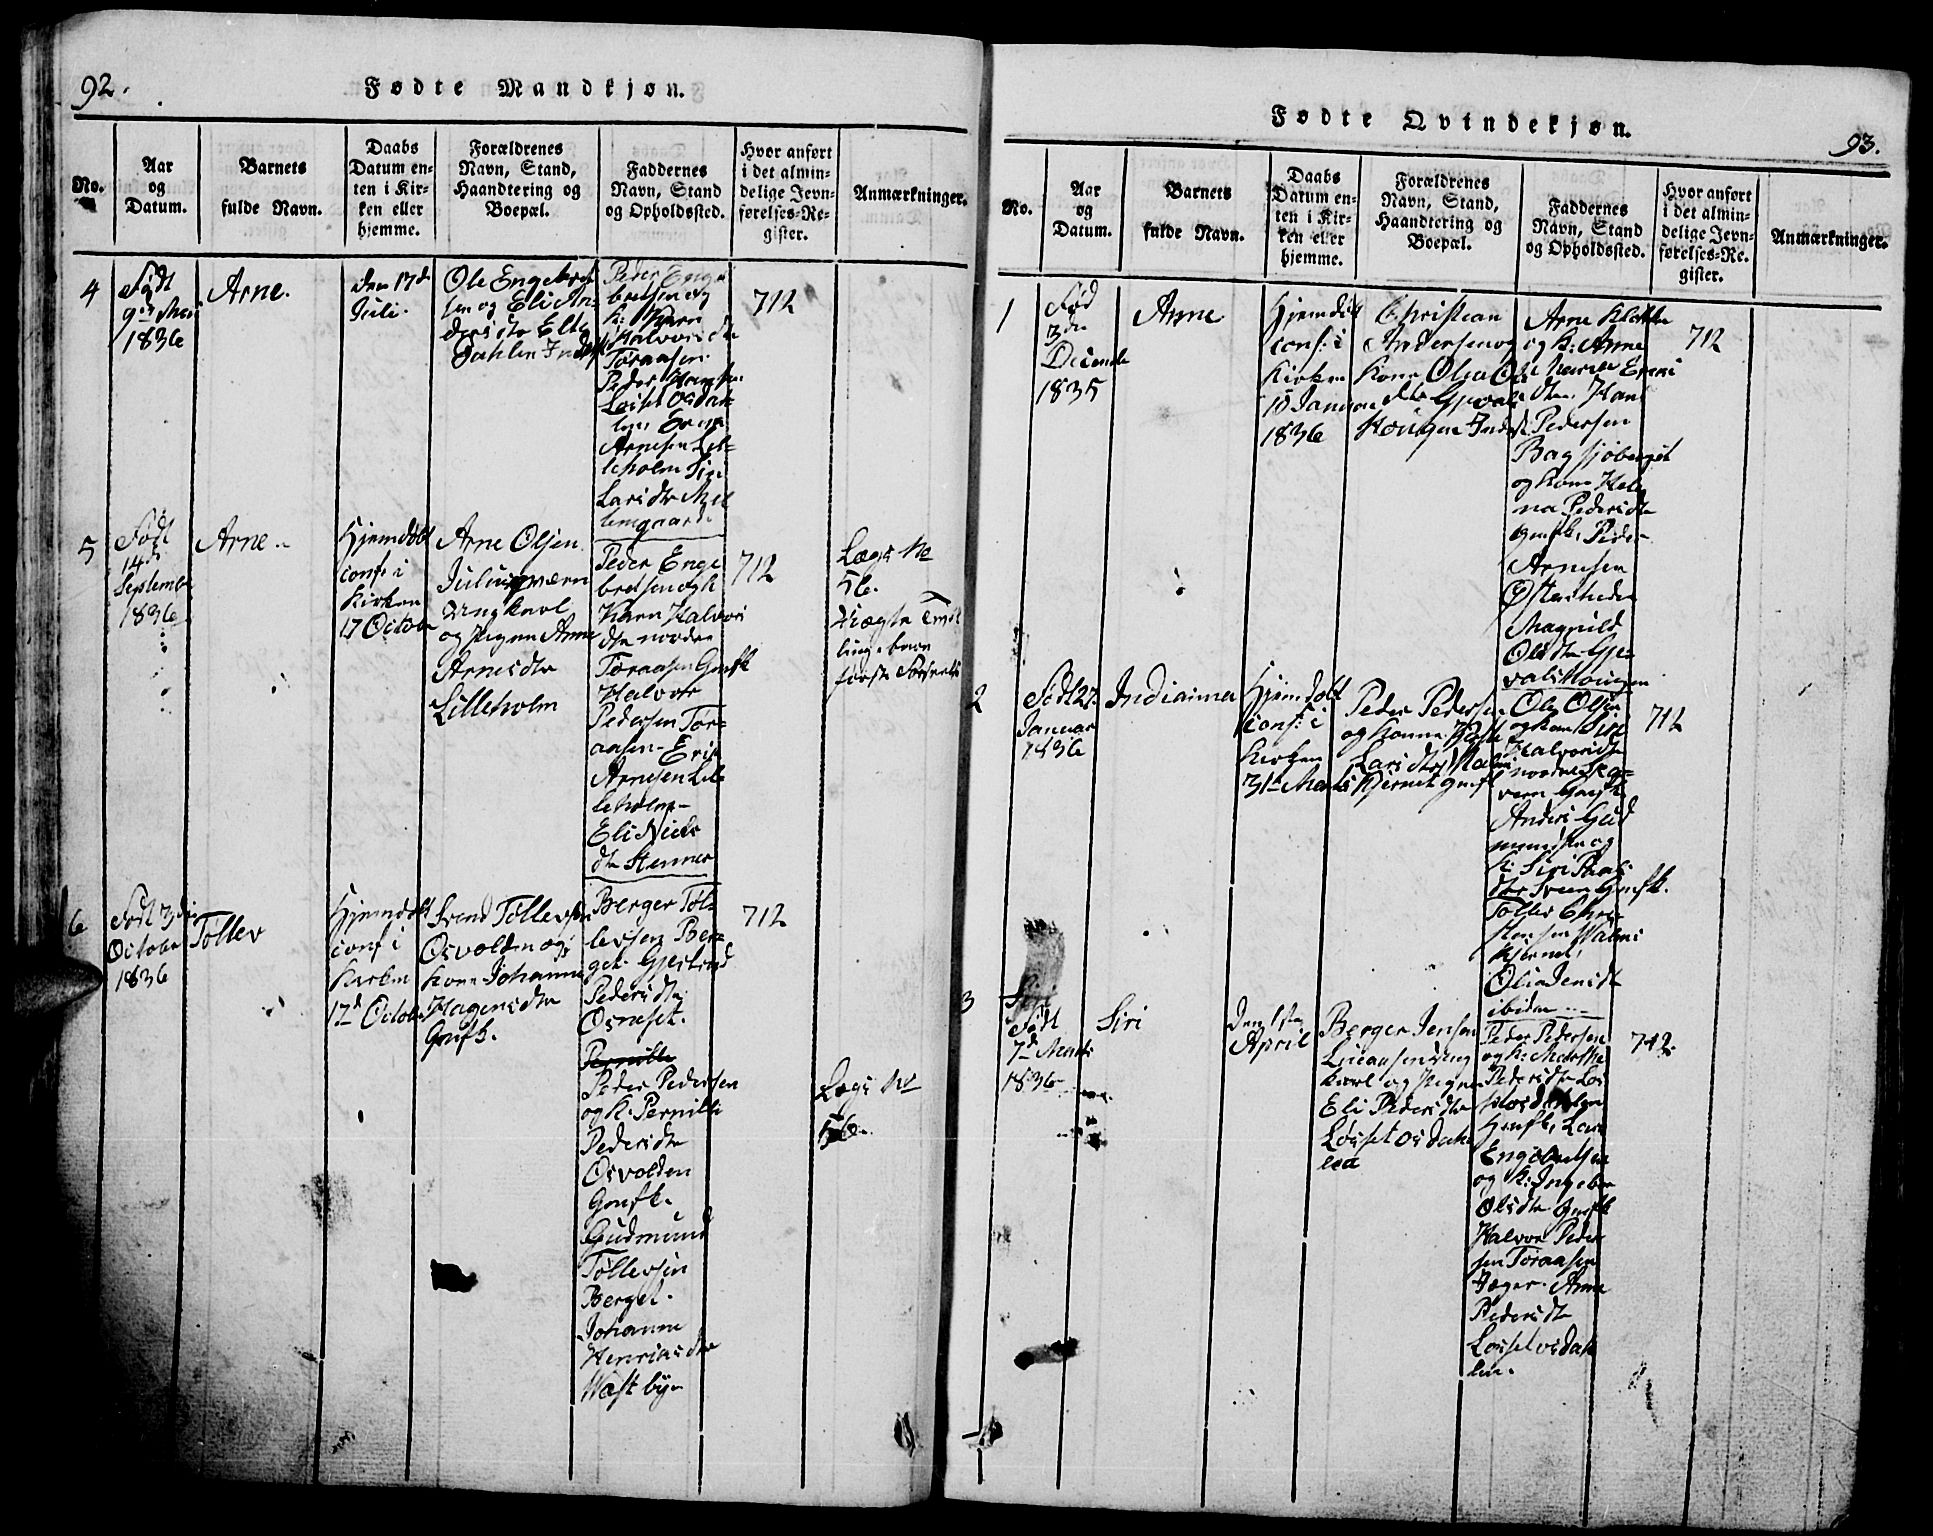 92.
Fødte Mandkjøn.
No.
Aar
og
Datum.
Barnets
fulde Navn.
Daabs
Datum en-
ten i Kir-
ken eller
hjemme.
Forældrenes
Navn, Stand,
Haandtering og
Boepæl.
Faddernes
Navn, Stand
og Opholdssted.
Hvor anført
i det almin-
delige Jevn-
førelses-Re-
gister.
Anmærkninger.
4
Født
9de Mai
1836
Arne.
den 17d
Juli.
Ole Engebret
sen og Eli An-
Dahlen
Peder Enge
bretsen og
k: Karn
Halvorsdtr
Toraasen.
Peder
Losset Osdah-
len,
Arnesen Lil-
leholm Siri
Larsdtr Mel
lemgaard.
712
5
Født
14d
September
1836
Arne.
Hjemdøbt
conf: i
Kirken
17 Octobr
Arne Olsen
Ungkarl
og Pigen Anne
Arnesdtr
Lilleholm
Peder Enge
bretsen og k
Karn Halvors
dtr nordre
Toraasen Gmfk
Halvor
Pedersen Tor-
aasen- Erik
Arnesen Lil
leholm-
Eli Niels
dtr Stenner
712
Lægs No
56.
første
6
Født 3die
October
1836
Tollev
Hjemdøbt
conf i
Kirken
17d Octobr
Svend Tollevsen
Osvolden og
kone Johanne
Hagensdtr
Gmfk.
Berger Tol-
levsen Ber-
get. Gjertrud
Pedersdtr
Osneset.
Pernille
Peder Pedersen
og k: Pernille
Pedersdtr
Osvolden
Gmfk.
Gudmund
Tollevsen
Berget.
Johanne
Henriksdtr
Wæstbye
712
Lægs No
56.
93.
Fødte Qvindekjøn.
No.
Aar
og
Datum.
Barnets
fulde Navn.
Daabs
Datum en-
ten i Kir-
ken eller
hjemme.
Forældrenes
Navn, Stand,
Haandtering og
Boepæl.
Faddernes
Navn, Stand
og Opholdssted.
Hvor anført
i det almin-
delige Jevn-
førelses-Re-
gister.
Anmærkninger.
1
Fød
3die
Decembr
1835
Anne
Hjemdøbt
conf: i
Kirken
10 Januar
1836
Christian
Andersen og
Kone Olea Ols
dtr Gjevals
Hougen
Arne Klette
og k: Anne
dtr. Hans
Pedersen
Bagsjøberget
og kone Hele
na Pedersdtr
gmfk, Peder
Arnesen
Østerheden
Magnild
Olsdtr Gje-
valshougen
712
2
Født 27.
Januar
1836
Indianna
Hjemdøbt
conf: i
Kirken
31te Marts
Peder Pedersen
og Konne
Larsdtr Malm
kjernet gmfk
Ole Olsen
og kone Siri
Halvorsdtr
nordre
Anders Gud
mundsen og
k: Siri
Gmfk.
Tollev Chri-
stensen Malm
kjernet,
Olia Jensdtr
ibidm
712
3
Siri
Født
7d Marts
1836
Siri
Den 1ste
April
Berger Jensen
Lueaasen Ung
karl og Pigen
Eli Pedersdtr
Losset Osdah
len
Peder Pedersen
og k: Marthe
Pedersdtr Los
set Osdahlen
Gmfk, Lars
Engebretsen
og k: Ingebor
Olsdtr Gmfk
Halvor Peder
sen Toraasen
Jæger. Anne
Pedersdtr
Losset osdah
len.
712.